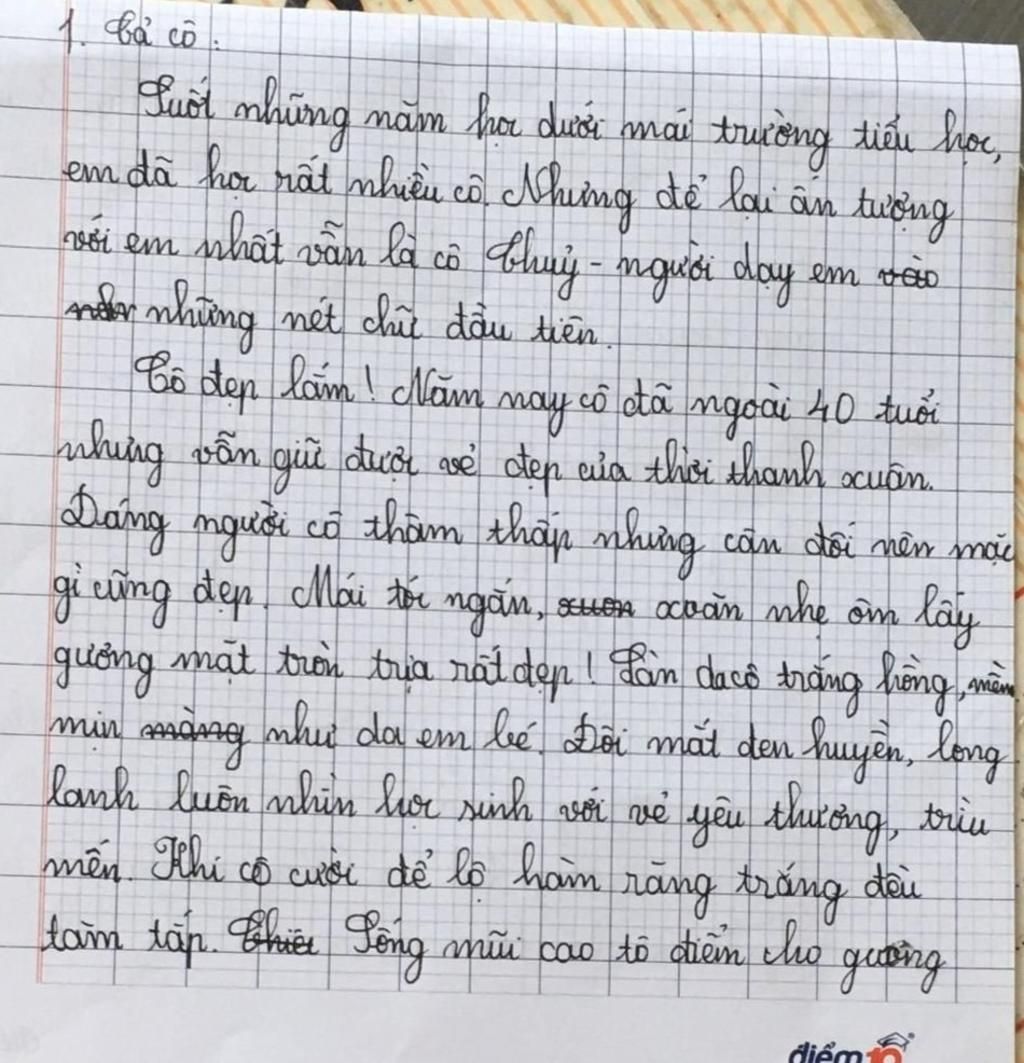 1. Cả cô.
Suốt những năm học dưới mái trường tiểu học,
em đã học rất nhiều cô. Nhưng để lại ấn tượng
với em nhất vẫn là cô Thuỷ - người dạy em vào
những nét chữ đầu tiên.
Cô đẹp lắm! Năm nay cô đã ngoài 40 tuổi
nhưng vẫn giữ được vẻ đẹp của thời thanh xuân.
Dáng người cô thâm thấp nhưng cân đối nên mặc
gì cũng đẹp. Mái tóc ngắn, xuăn nhẹ ôm lấy
gương mặt tròn trịa rất đẹp! Làn da cô trắng hồng, mềm
mịn màng như da em bé. Đôi mắt đen huyền, long
lanh luôn nhìn học sinh với vẻ yêu thương, trìu
mến. Khi cô cười để lộ hàm răng trắng đều
tăm tắp. Sống mũi cao tô điểm cho gương
điểm 10